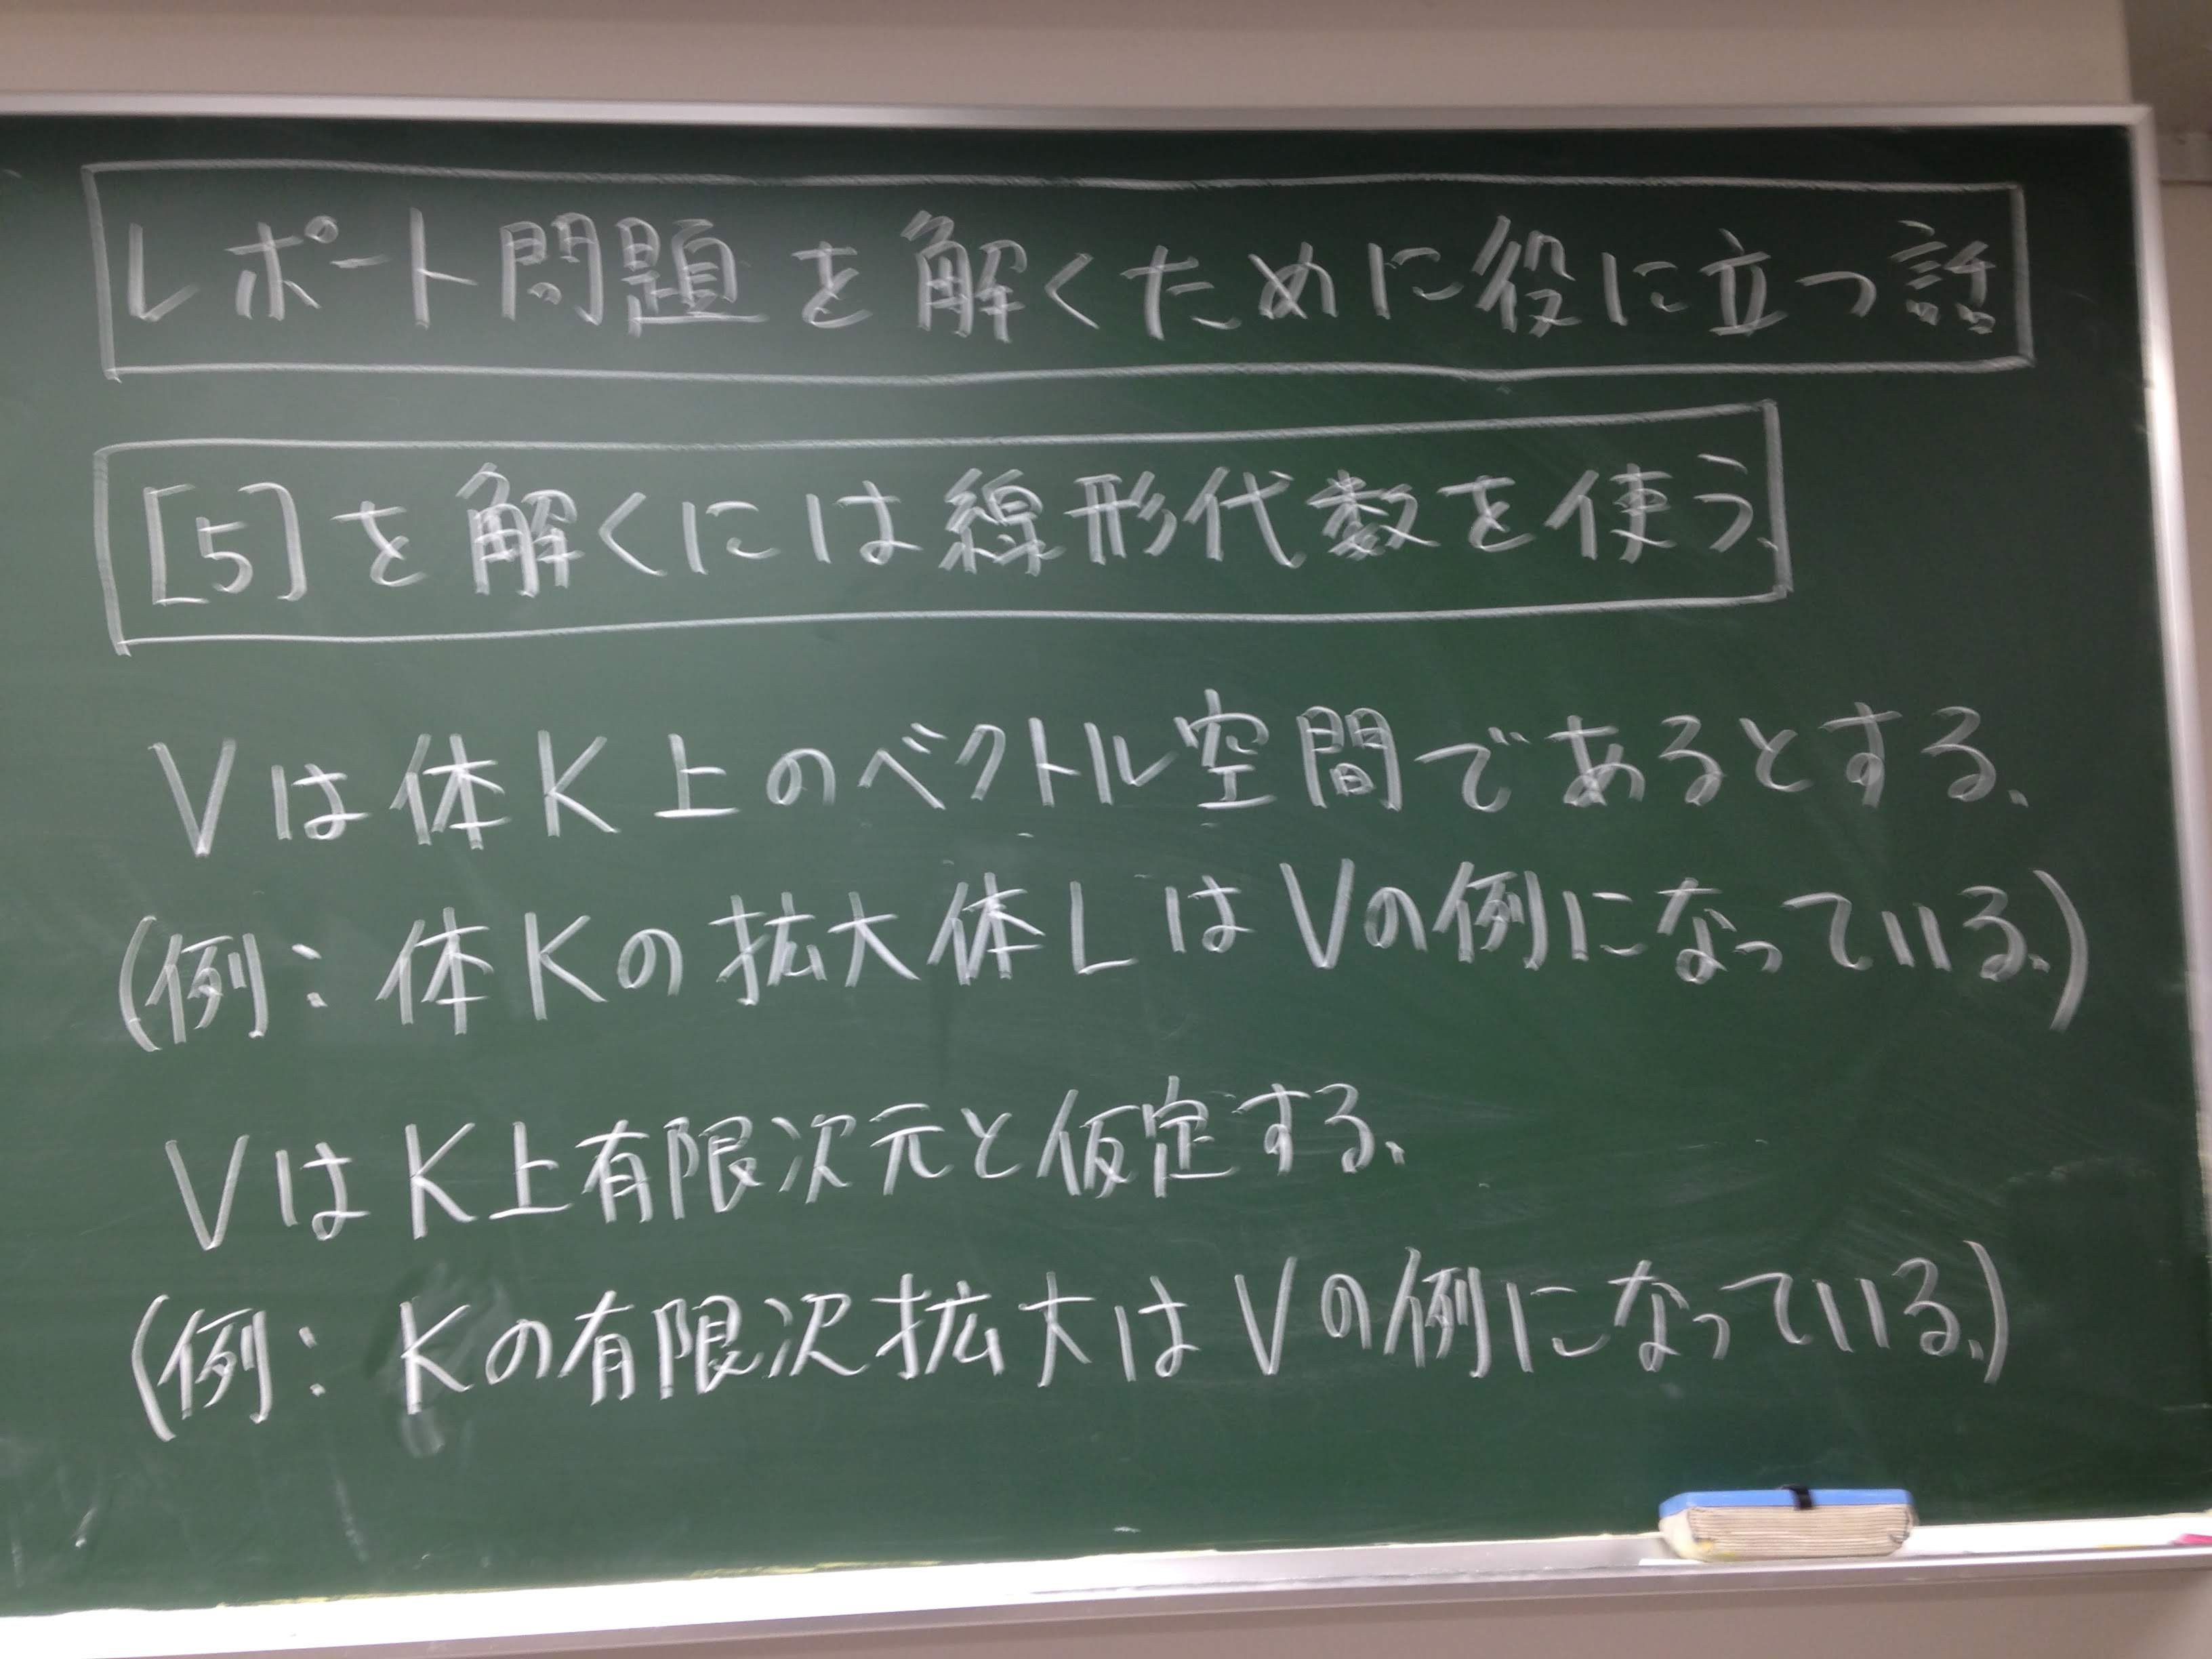 レポート問題を解くために役に立つ話
[5]を解くには線形代数を使う.
Vは体K上のベクトル空間であるとする.
(例: 体Kの拡大体LはVの例になっている.)
VはK上有限次元と仮定する.
(例: Kの有限次拡大はVの例になっている.)